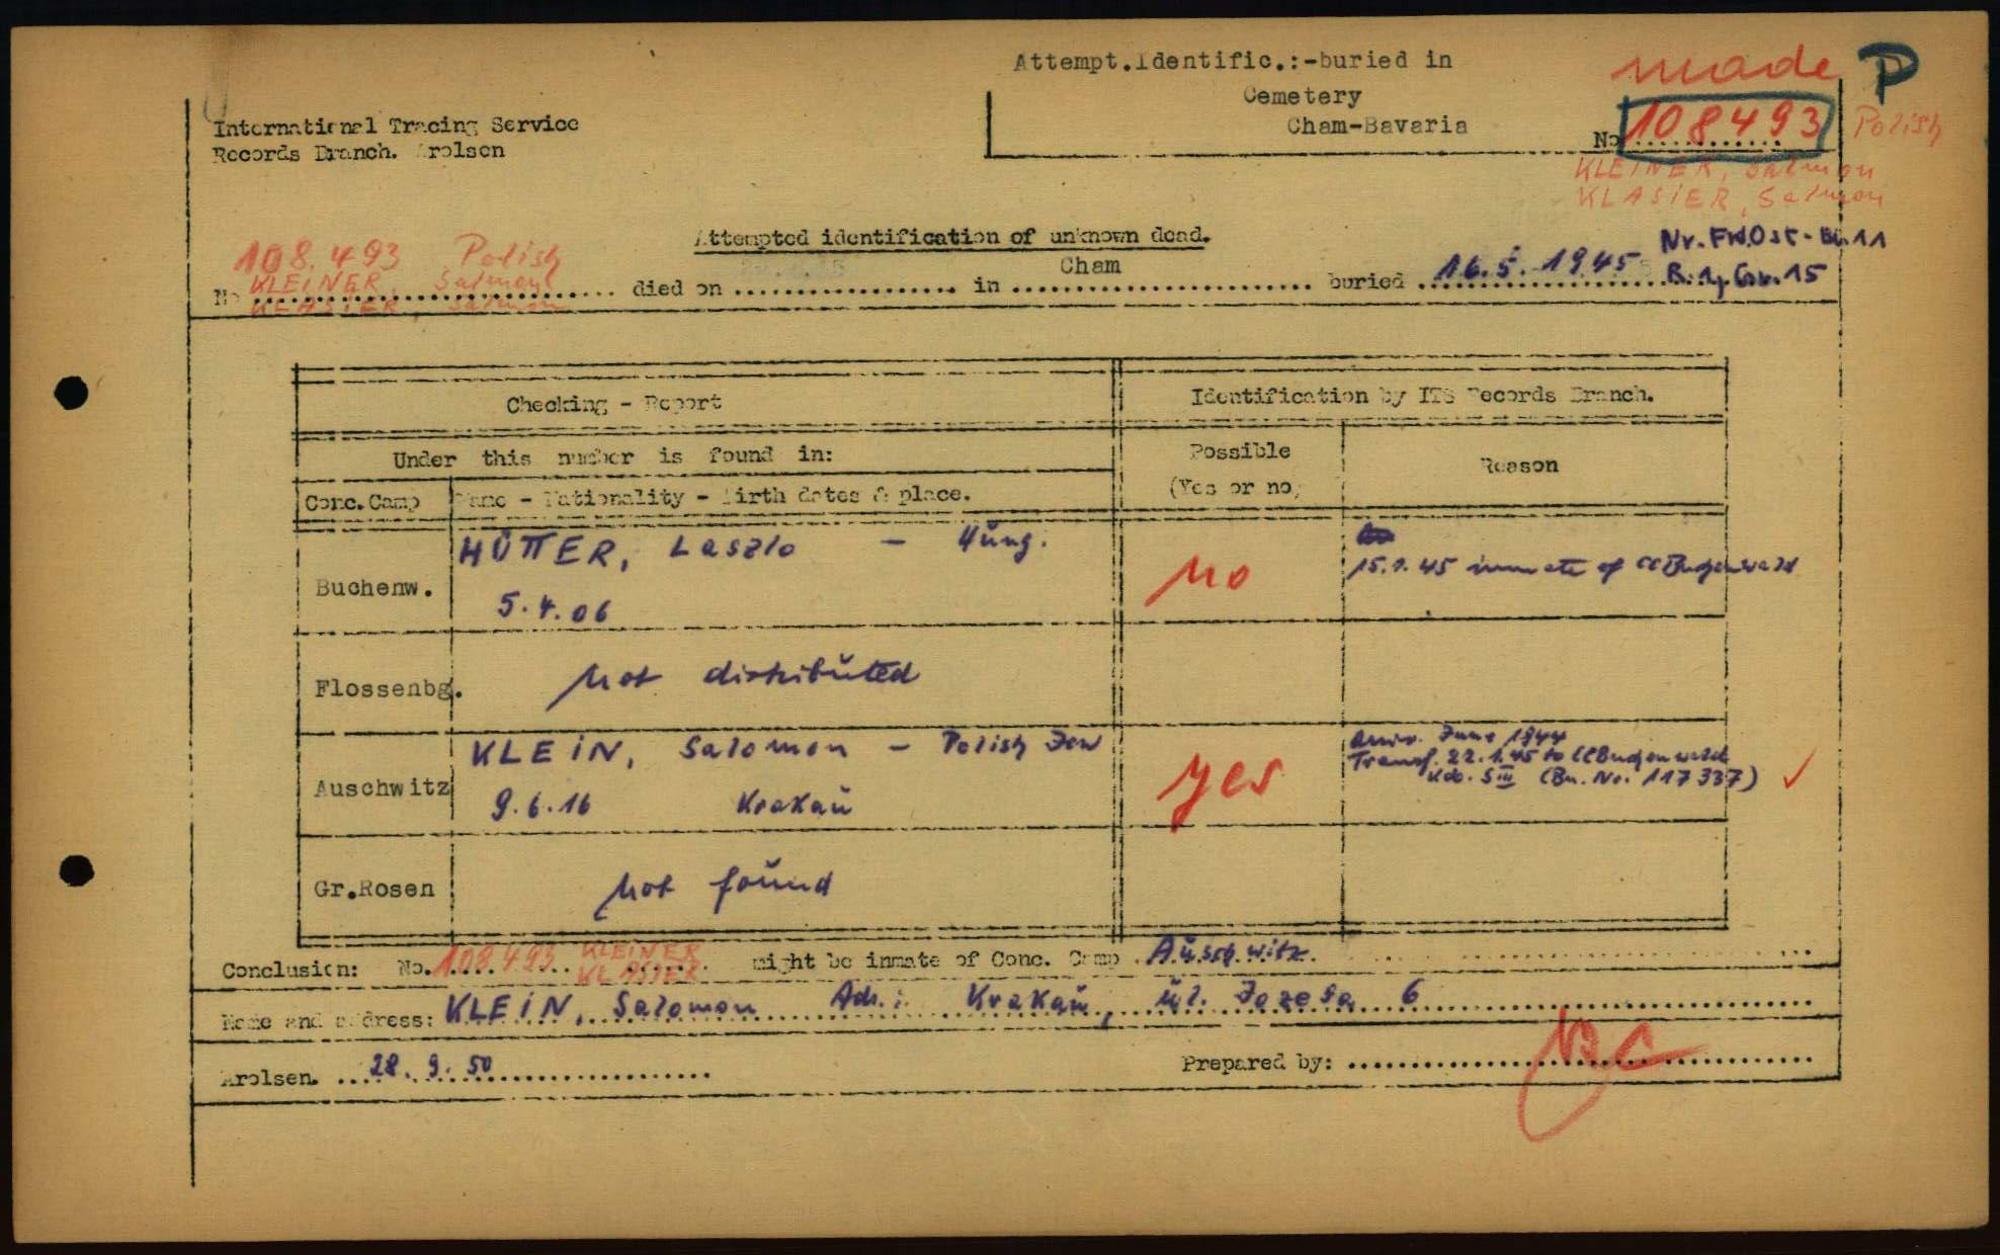 Attempt.Identific.:-buried in
Cemetery
Cham-Bavaria
made P
No 108493 Polish
KLEINER, Salmon
KLASIER, Salmon
International Tracing Service
Records Branch. Arolsen
Attempted identification of unknown dead.
Nr. Frd.Ost - Bl. 11
108.493 Polish
KLEINER, Salmon
KLASIER, Salmon
No died on in Cham buried 16.5.1945 R. 1, Gr. 15
Checking - Report
Identification by ITS Records Branch.
Under this number is found in:
Possible
(Yes or no)
Reason
Conc.Camp Name - Nationality - Birth dates & place.
Buchenw. HÜTTER, Laszlo - Hung.
5.4.06
no
15.1.45 inmate of CC Buchenwald
Flossenbg. not distributed
Auschwitz KLEIN, Salomon - Polish Jew
9.6.16 Krakau
yes
Arriv. June 1944
Transf. 22.1.45 to CC Buchenwald
Kdo. SIII (Bu. No. 117337)
Gr.Rosen not found
Conclusion: No. 108493 KLEINER KLASIER might be inmate of Conc. Camp Auschwitz
Name and address: KLEIN, Salomon Adr.: Krakau, ul. Jozefa 6
Arolsen. 28.9.50 Prepared by: